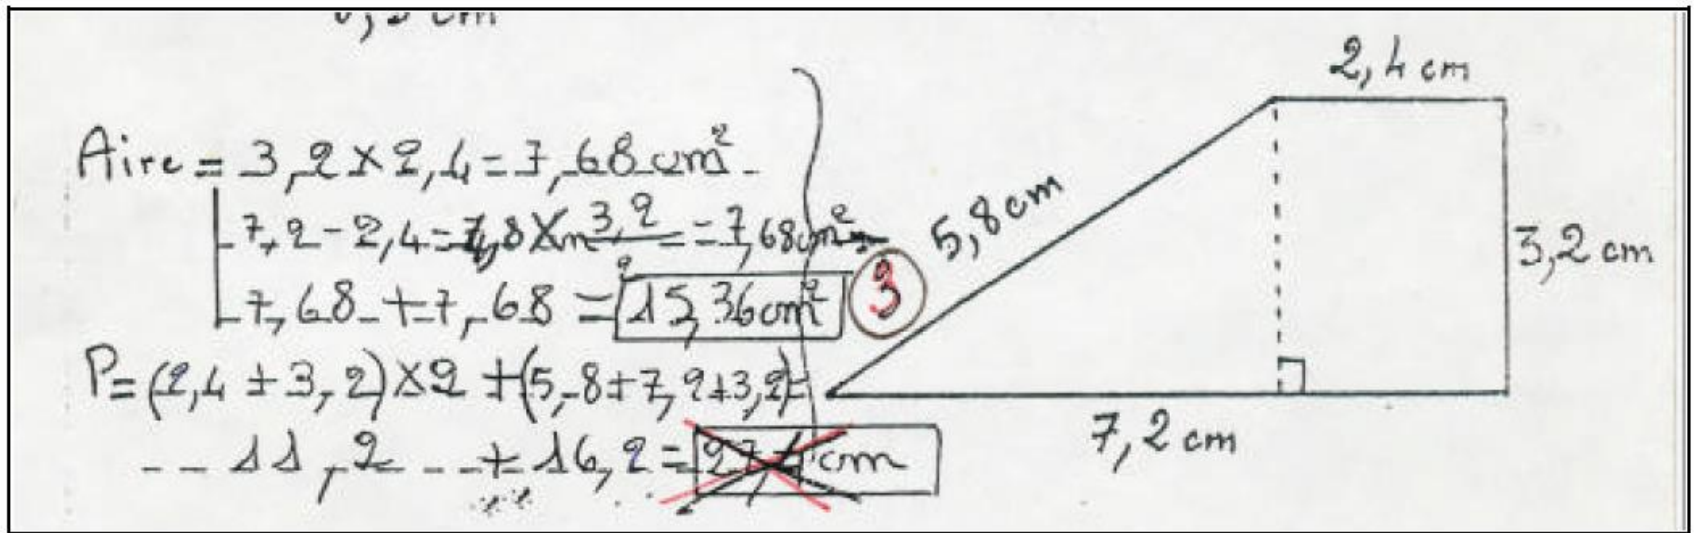 Aire = 3,2 × 2,4 = 7,68 cm².
7,2 - 2,4 = 4,8 × 3,2 = 7,68 cm²
7,68 + 7,68 = 15,36 cm²
3
P = (2,4 + 3,2) × 2 + (5,8 + 7,2 + 3,2) =
11,2 + 16,2 = 27,4 cm
2,4 cm
5,8 cm
3,2 cm
7,2 cm